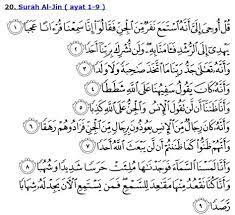 20. Surah Al-Jin ( ayat 1-9 )
قُلْ أُوحِيَ إِلَيَّ أَنَّهُ اسْتَمَعَ نَفَرٌ مِّنَ الْجِنِّ فَقَالُوا إِنَّا سَمِعْنَا قُرْآنًا عَجَبًا ١
يَهْدِي إِلَى الرُّشْدِ فَآمَنَّا بِهِ وَلَن نُّشْرِكَ بِرَبِّنَا أَحَدًا ٢
وَأَنَّهُ تَعَالَى جَدُّ رَبِّنَا مَا اتَّخَذَ صَاحِبَةً وَلَا وَلَدًا ٣
وَأَنَّهُ كَانَ يَقُولُ سَفِيهُنَا عَلَى اللَّهِ شَطَطًا ٤
وَأَنَّا ظَنَنَّا أَن لَّن تَقُولَ الْإِنسُ وَالْجِنُّ عَلَى اللَّهِ كَذِبًا ٥
وَأَنَّهُ كَانَ رِجَالٌ مِّنَ الْإِنسِ يَعُوذُونَ بِرِجَالٍ مِّنَ الْجِنِّ فَزَادُوهُمْ رَهَقًا ٦
وَأَنَّهُمْ ظَنُّوا كَمَا ظَنَنتُمْ أَن لَّن يَبْعَثَ اللَّهُ أَحَدًا ٧
وَأَنَّا لَمَسْنَا السَّمَاءَ فَوَجَدْنَاهَا مُلِئَتْ حَرَسًا شَدِيدًا وَشُهُبًا ٨
وَأَنَّا كُنَّا نَقْعُدُ مِنْهَا مَقَاعِدَ لِلسَّمْعِ فَمَن يَسْتَمِعِ الْآنَ يَجِدْ لَهُ شِهَابًا
رَّصَدًا ٩